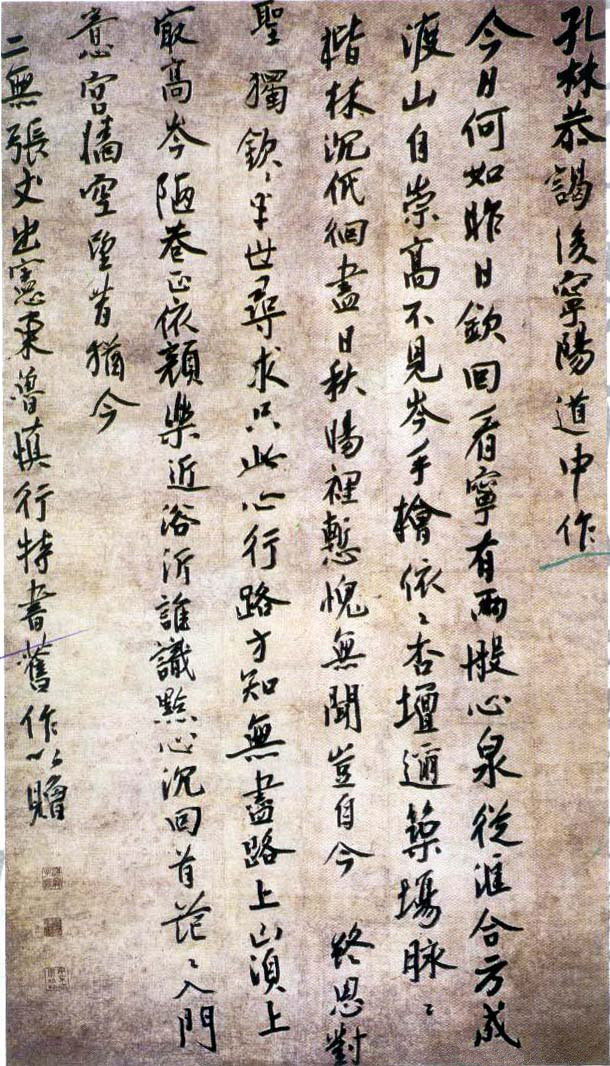 孔林恭謁後寧陽道中作
今日何如昨日欽回看寧有兩般心泉從滙合方成
渡山自崇高不見岑手檜依〻杏壇邇築場脉〻
楷林沉低徊盡日秋陽裡慙愧無聞豈自今 終思對
聖獨欽〻半世尋求只此心行路方知無盡路上山須上
最高岑陋巷正依顏樂近浴沂誰識點心沉回首茫〻入門
意宮牆空望昔猶今
二無張丈出憲東魯慎行特書舊作以贈